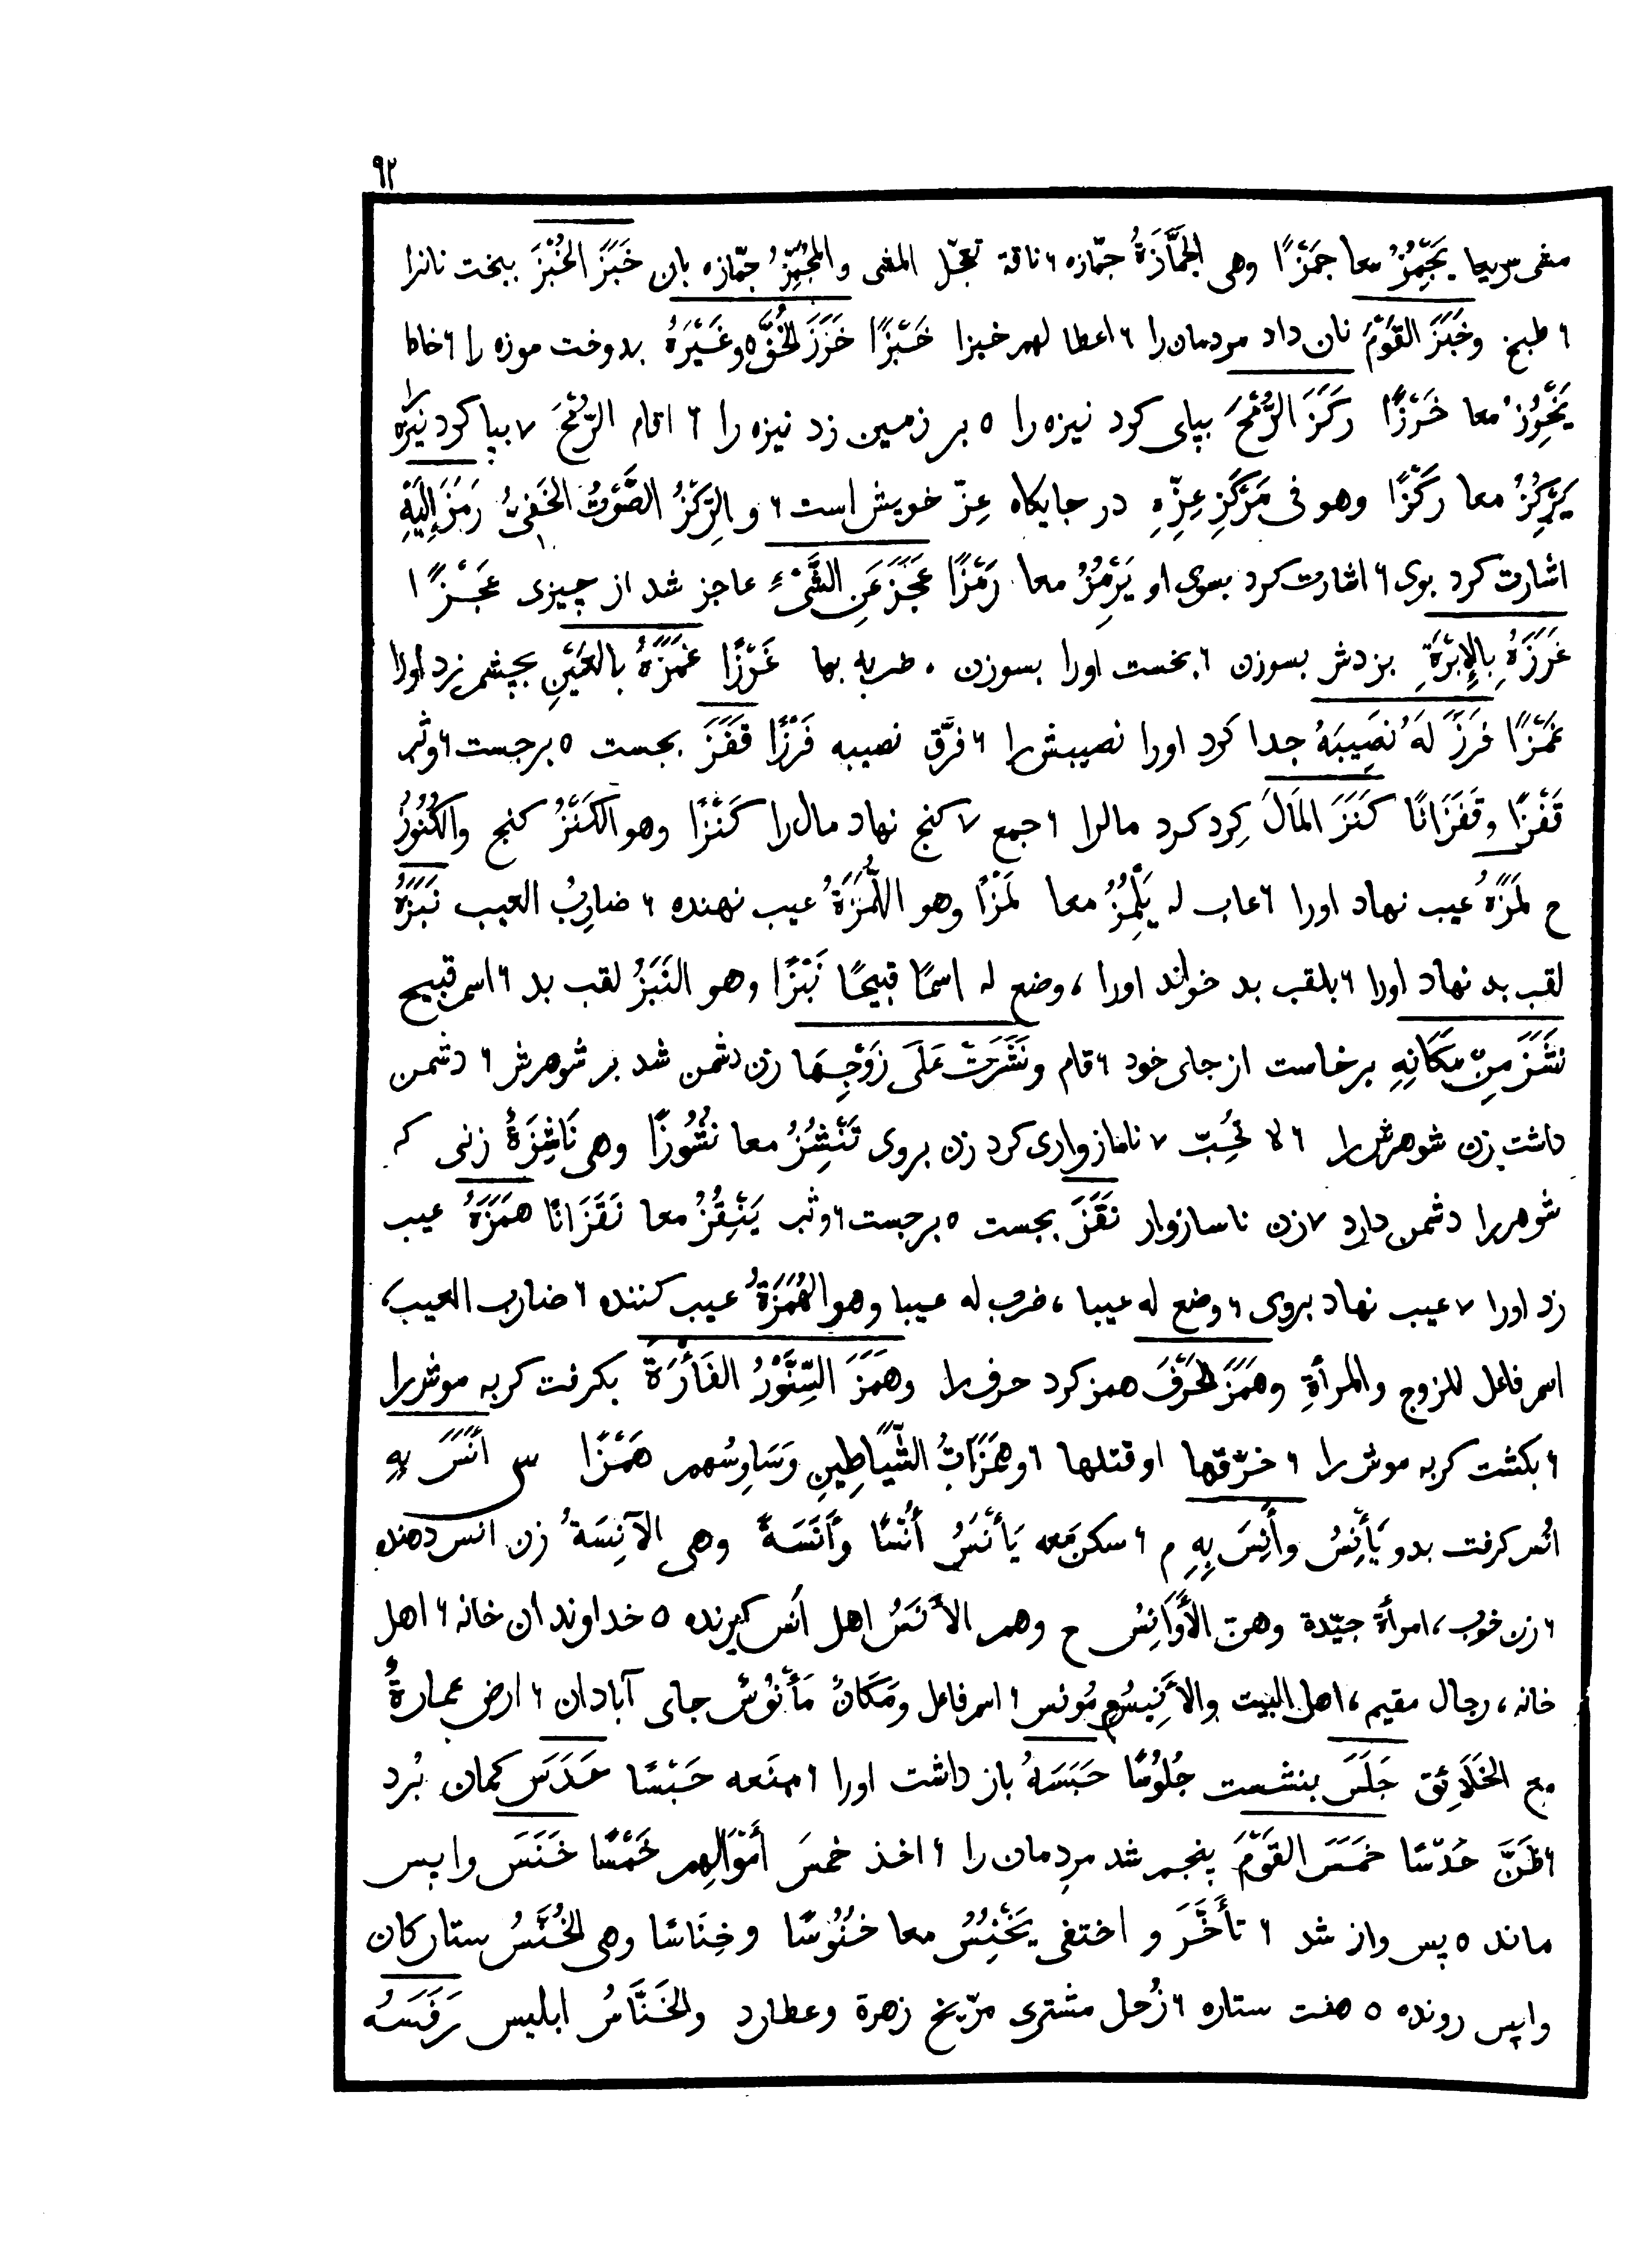 ٩٢
مشی سریعا یَجْمِزُ معا جَمْزًا وهی الجَمَّازَةُ جمّازه ۶ ناقة تعجّل المشی والمُجَمِّزُ جمّازه بان خَبَزَ الخُبْزَ ببخت نانرا
۶ طبخ وخَبَزَ القَوْمَ نان داد مردمان را ۶ اعطا لهم خبزا خَبْزًا خَرَزَ الخُفَّ ۵ وغَیْرَهُ بدوخت موزه را ۶ خاط
یَخْرِزُ معا خَرْزًا رَکَزَ الرُّمْحَ بپای کرد نیزه را ۵ بر زمین زد نیزه را ۶ اقام الرُّمْحَ ٧ بپا کرد نیزه را
یَرْکِزُ معا رَکْزًا وهو فی مَرْکَزِ عِزِّهِ در جایکاه عِزّ خویش است ۶ والرِّکْزُ الصَّوْتُ الخَفِیُّ رَمَزَ إِلَیْهِ
اشارت کرد بوی ۶ اشارت کرد بسوی او یَرْمِزُ معا رَمْزًا عَجَزَ عَنِ الشَّیْءِ عاجز شد از چیزی عَجْزًا
غَرَزَهُ بِالإِبْرَةِ بزدش بسوزن ۶ بخست اورا بسوزن ، ضربه بها غَرْزًا غَمَزَهُ بِالعَیْنِ بچشم زد اورا
غَمْزًا فَرَزَ لَهُ نَصِیبَهُ جدا کرد اورا نصیبش را ۶ فرَّق نصیبه فَرْزًا قَفَزَ بجست ۵ برجست ۶ وثب
قَفْزًا وقَفَزَانًا کَنَزَ المَالَ کِرد کرد مالرا ۶ جمع ٧ کنج نهاد مال را کَنْزًا وهو الکَنْزُ کنج والکُنُوزُ
ح لَمَزَهُ عیب نهاد اورا ۶ عاب له یَلْمِزُ معا لَمْزًا وهو اللُّمَزَةُ عیب نهنده ۶ ضاربُ العیب نَبَزَهُ
لقب بد نهاد اورا ۶ بلقب بد خواند اورا ، وضع له اسمًا قبیحًا نَبْزًا وهو النَبَزُ لقب بد ۶ اسم قبیح
نَشَزَ مِنْ مَکَانِهِ برخاست از جای خود ۶ قام ونَشَزَتْ عَلَی زَوْجِهَا زن دشمن شد بر شوهرش ۶ دشمن
داشت زن شوهرش را ۶ لا تحُبّ ٧ ناسازواری کرد زن بروی تَنْشِزُ معا نُشُوزًا وهی نَاشِزَةٌ زنی که
شوهررا دشمن دارد ٧ زن ناسازوار نَقَزَ بجست ۵ برجست ۶ وثب یَنْقِزُ معا نَقَزَانًا هَمَزَهُ عیب
زد اورا ٧ عیب نهاد بروی ۶ وضع له عیبا ، ضرب له عیبا وهو الهُمَزَةُ عیب کننده ۶ ضارب العیب،
اسم فاعل للزوج والمرأةِ وهَمَزَ الحَرْفَ همز کرد حرف را وهَمَزَ السِّنَّوْرُ الفَأْرَةَ بکرفت کربه موش را
۶ بکشت کربه موش را ۶ خرّقها او قتلها ۶ وهَمَزَاتُ الشَّیَاطِینِ وَسَاوِسُهم هَمْزًا س أَنَسَ بِهِ
اُنس کرفت بدو یَأْنِسُ وأَنِسَ بِهِ م ۶ سکن معه یَأْنَسُ أُنْسًا وأَنَسَةً وهی الآنِسَةُ زن انس دهنده
۶ زن خوب ، امرأة جیّدة وهنّ الأَوَانِسُ ح وهم الأَنَسُ اهل اُنس کیرنده ۵ خداوندان خانه ۶ اهل
خانه ، رجال مقیم ، اهل البیت والأَنِیسُ مونس ۶ اسم فاعل ومَکَانٌ مَأْنُوسٌ جای آبادان ۶ ارض عمارةٌ
مع الخَلَائِقِ جَلَسَ بنشست جُلُوسًا حَبَسَهُ باز داشت اورا ۶ منَعه حَبْسًا حَدَسَ کمان بُرد
۶ ظَنَّ حَدْسًا خَمَسَ القَوْمَ پنجم شد مردمان را ۶ اخذ خمسَ أَمْوَالِهم خَمْسًا خَنَسَ واپس
ماند ۵ پس واز شد ۶ تأَخَّرَ و اختفی یَخْنِسُ معا خُنُوسًا وخِنَاسًا وهی الخُنَّسُ ستارکان
واپس رونده ۵ هفت ستاره ۶ زُحل مشتری مرّیخ زهرة وعطارد والخَنَّاسُ ابلیس رَفَسَهُ